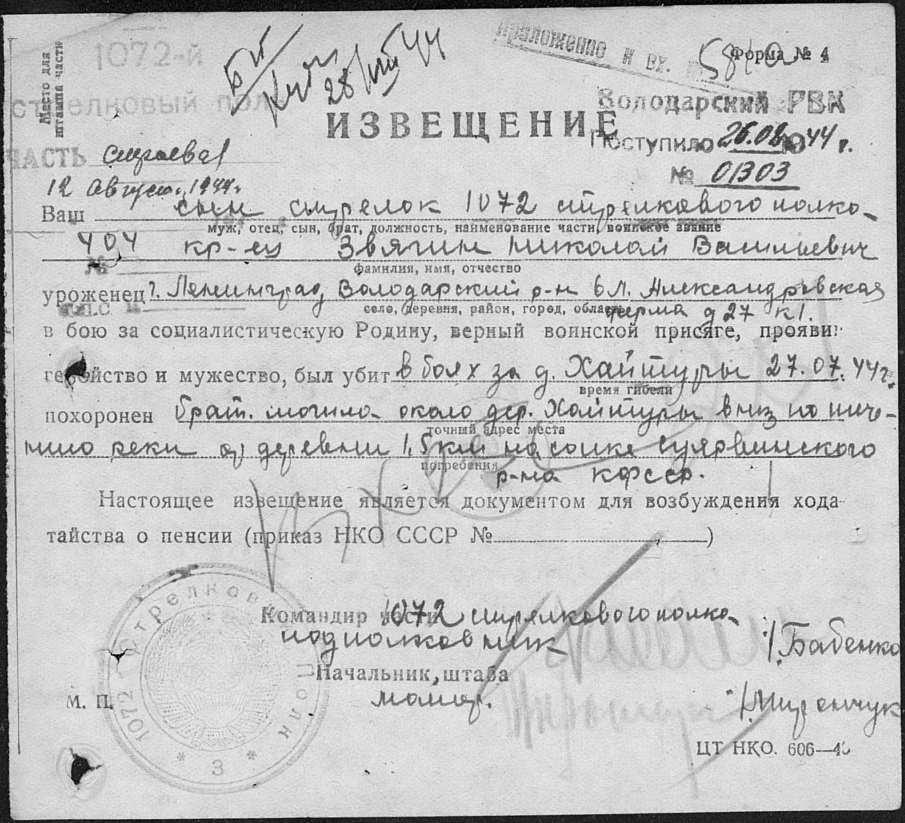 Место для
штампа части
1072-й
стрелковый пол
ЧАСТЬ
12 Август. 1944г.
28/VIII 44
Приложение к вх.
Форма № 4
Володарский РВК
Поступило 26.08 1944 г.
№ 01303
ИЗВЕЩЕНИЕ
Ваш сын стрелок 1072 стрелкового полка
муж, отец, сын, брат, должность, наименование части, воинское звание
404 кр-ец Звягин Николай Васильевич
фамилия, имя, отчество
уроженец г. Ленинград Володарский р-н Александровская
село, деревня, район, город, область
ферма д 27 к 1.
в бою за социалистическую Родину, верный воинской присяге, прояви
геройство и мужество, был убит в боях за д. Хайтуры 27.07.44г.
время гибели
похоронен брат. могила около дер. Хайтуры вниз по тече-
точный адрес места
нию реки от деревни 1,5 км на сопке Суярвинского
погребения
р-на КФССР.
Настоящее извещение является документом для возбуждения хода-
тайства о пенсии (приказ НКО СССР № )
Командир части 1072 стрелкового полка
подполковник /Бабенко
Начальник штаба
майор.
М. П.
1072 Стрелковый Полк
* 3 *
ЦТ НКО. 606—4